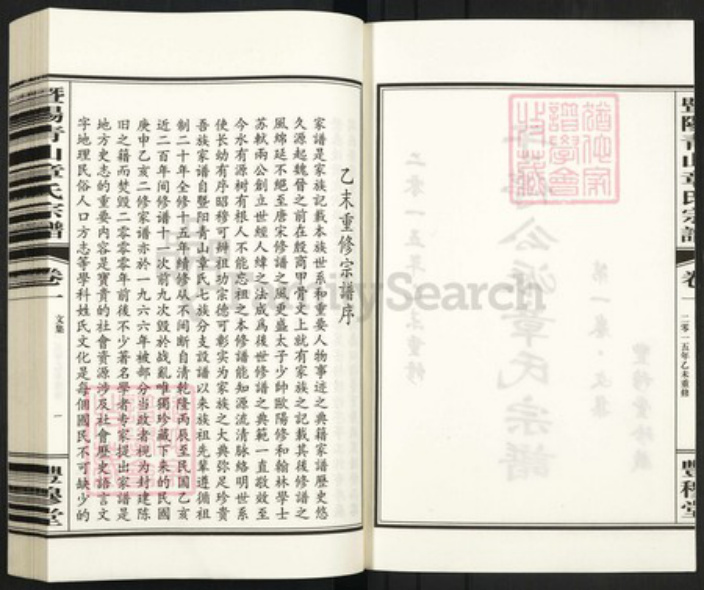 乙未重修宗譜序
家譜是家族記載本族世系和重要人物事迹之典籍家譜歷史悠
久源起魏晉之前在殷商甲骨文上就有家族之記載其後修譜之
風綿延不絕至唐宋修譜之風更盛太子少師歐陽修和翰林學士
蘇軾兩公創立世經人緯之法咸爲後世修譜之典範一直敬效至
今水有源樹有根人不能忘祖之本修譜能知源流清脉絡明世系
使長幼有序昭穆可辨祖功宗德可彰實为家族之大典弥足珍貴
吾族家譜自暨阳青山章氏七族分支設譜以来族祖先輩遵循祖
制二十年全修十五年續修从不间断自清乾隆丙辰至民国乙亥
近二百年间修譜十一次前九次毁於战亂唯獨珍藏下来的民國
庚申乙亥二修家譜亦於一九六六年被部分当政者視为封建陈
旧之籍而焚毁二零零零年前後不少著名學者专家提出家譜是
地方史志的重要内容是寶貴的社會資源涉及社會歷史語言文
字地理民俗人口方志等學科姓氏文化是每個國民不可缺少的
暨陽青山章氏宗譜
卷一
文集
一
豐穆堂
暨陽青山章氏宗譜
卷一
二零一五年乙未重修
豐穆堂
FamilySearch